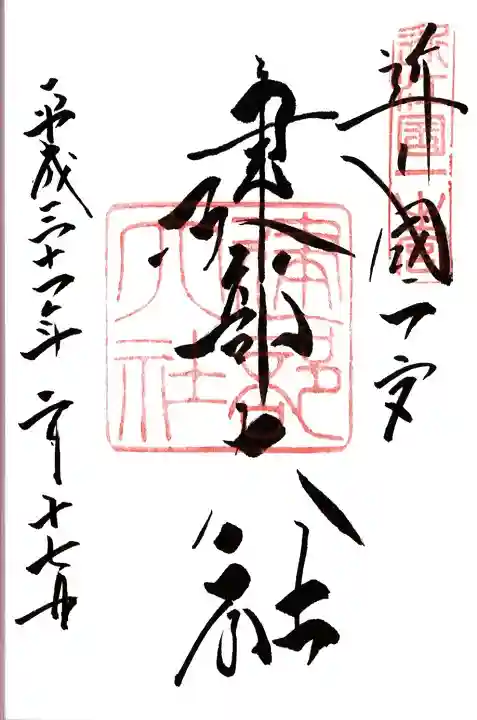 近江國一宮
近江国一之宮
建部大社
建部大社
平成三十一年二月十七日